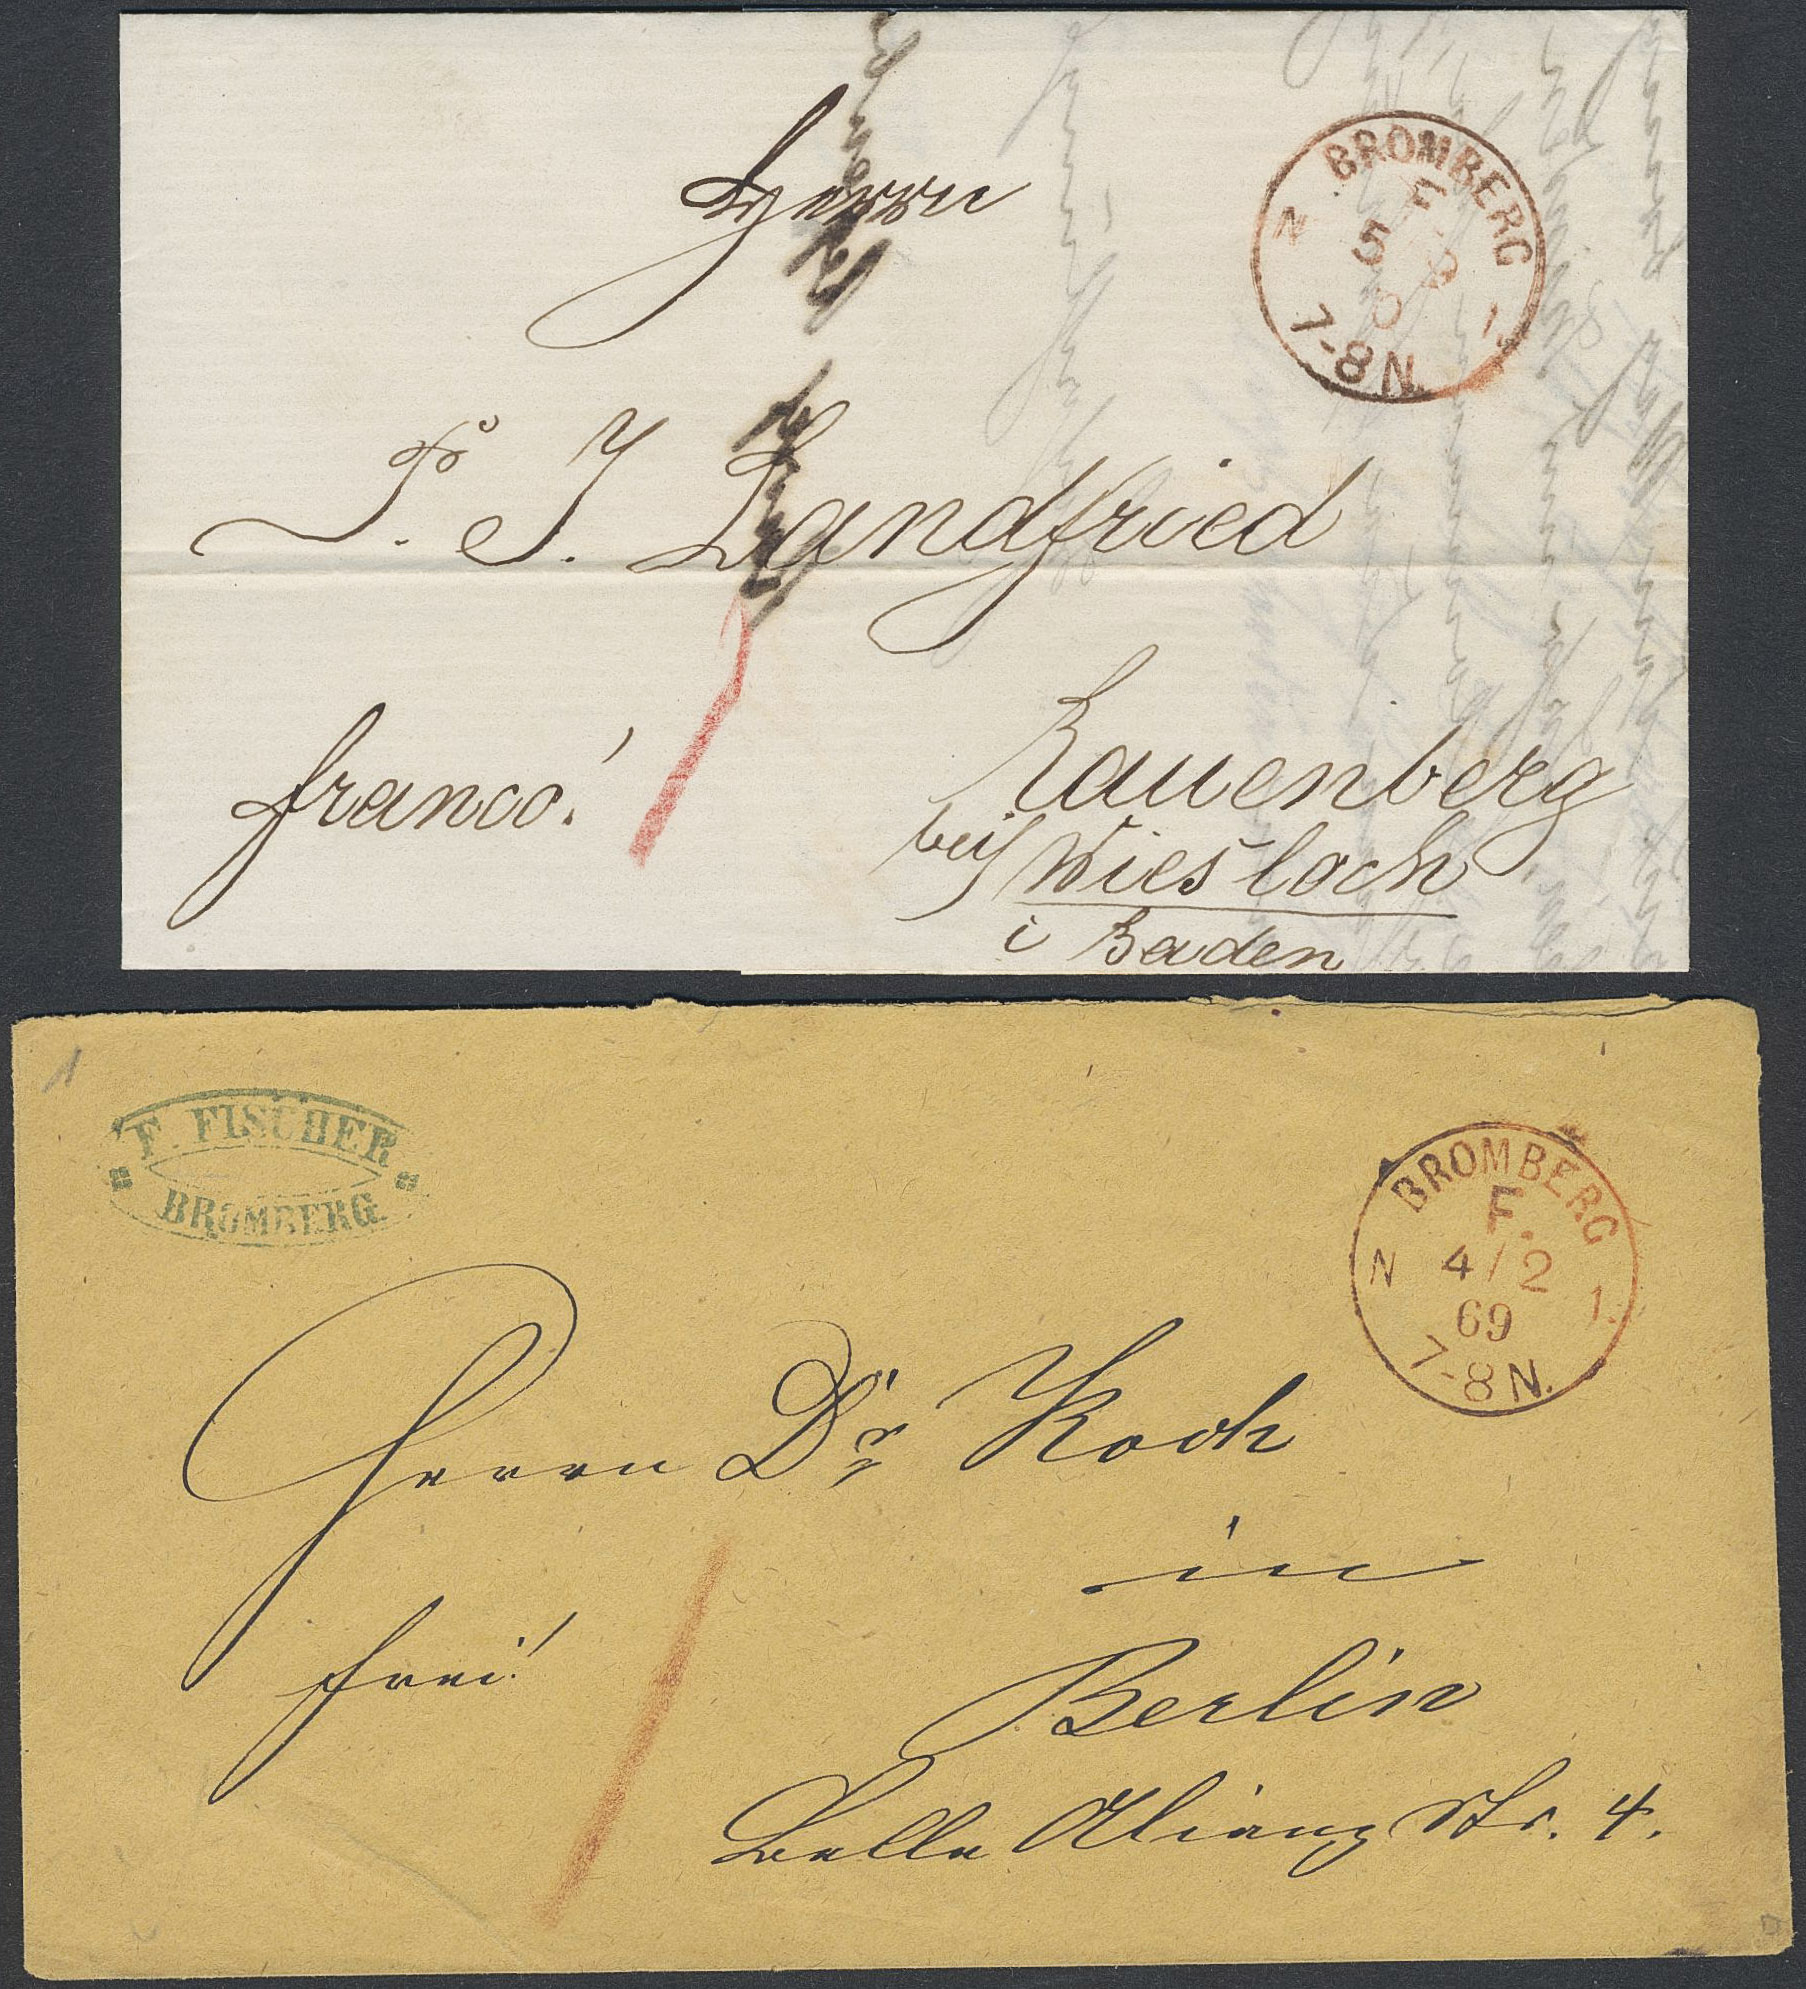 Herrn
BROMBERG
F.
N 5 9 1.
0
7-8N.
P. J. Landfried
franco!
Rauenberg
bei Wiesloch
i Baden
F. FISCHER
BROMBERG.
BROMBERG
F.
4/2
N 1.
69
7-8N.
Herrn Dr Koch
in
frei!
Berlin
Belle Alianz Str. 4.